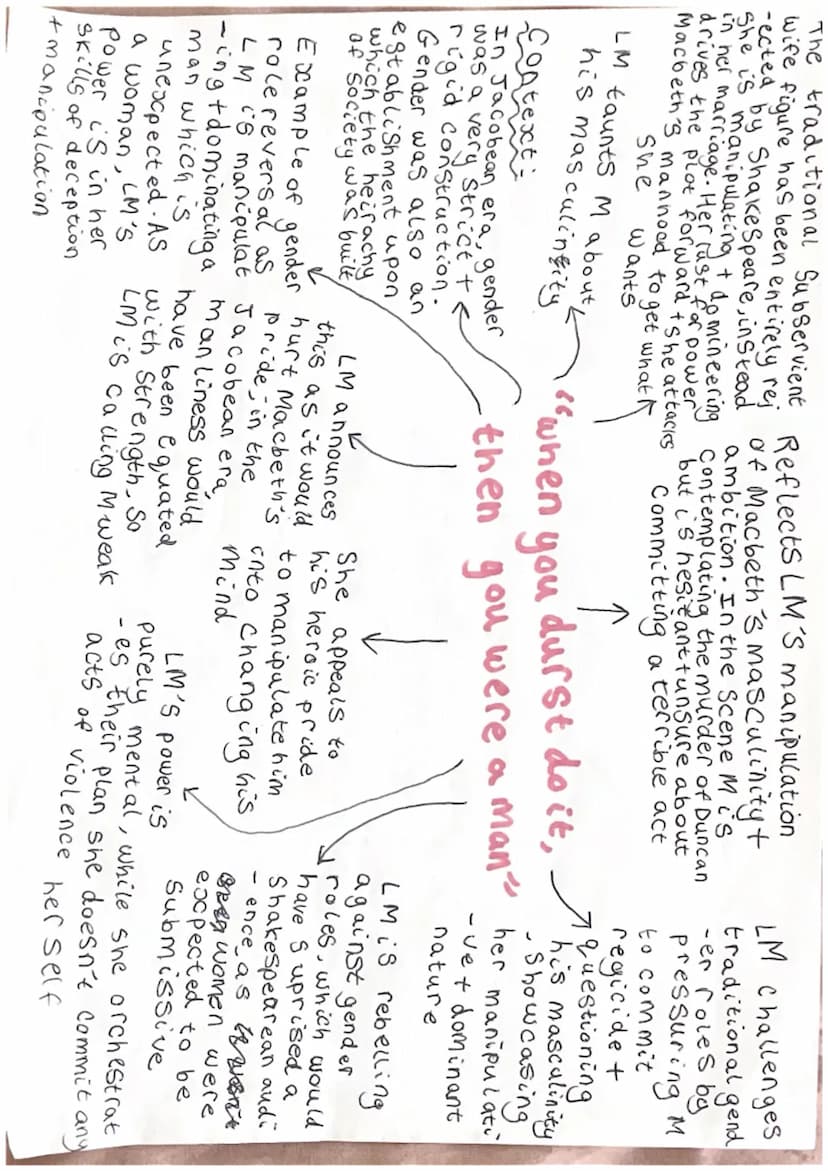 The traditional subservient
wife figure has been entirely rej
-ected by Shakespeare, instead
she is manipulating + domineering
in her marriage. Her lust for power
drives the plot forward + she attacks
Macbeth's manhood to get what
she wants
Reflects LM's manipulation
of Macbeth's masculinity +
ambition. In the scene M is
contemplating the murder of Duncan
but is hesitant + unsure about
committing a terrible act
LM challenges
traditional gend
-er roles by
pressuring M
to commit
regicide +
questioning
his masculinity
, showcasing
her manipulati
-ve + dominant
nature
LM taunts M about
his masculinity
Context:
In Jacobean era, gender
was a very strict +
rigid construction.
Gender was also an
establishment upon
which the heirachy
of society was built
"when you durst do it,
then you were a man"
Example of gender
role reversal as
LM is manipulat
-ing + dominating a
man which is
unexpected. As
a woman, LM's
power is in her
skills of deception
+ manipulation
LM announces
this as it would
hurt Macbeth's
pride, in the
Jacobean era,
manliness would
have been equated
with strength, so
LM is calling M weak
She appeals to
his heroic pride
to manipulate him
into changing his
mind
LM's power is
purely mental, while she orchestrat
-es their plan she doesn't commit any
acts of violence herself
LM is rebelling
against gender
roles, which would
have suprised a
Shakespearean audi
-ence, as
women were
expected to be
submissive